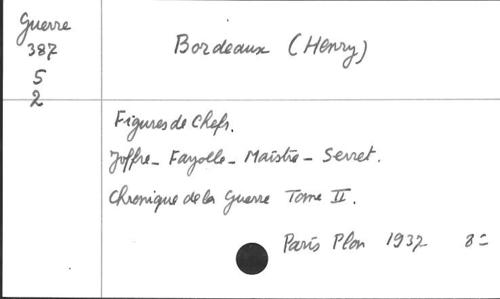 Guerre
387
5
2
Bordeaux (Henry)
Figures de Chefs.
Joffre - Fayolle - Maistre - Serret.
Chronique de la Guerre Tome II.
Paris Plon 1937 8=